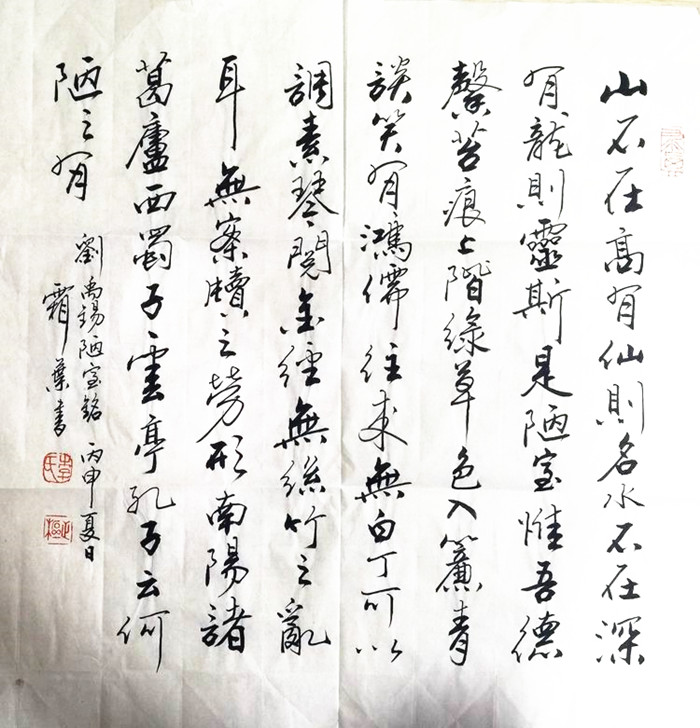 山不在高有仙則名水不在深
有龍則靈斯是陋室惟吾德
馨苔痕上階綠草色入簾青
談笑有鴻儒往來無白丁可以
調素琴閱金經無絲竹之亂
耳無案牘之勞形南陽諸
葛廬西蜀子雲亭孔子云何
陋之有
劉禹錫陋室銘 丙申夏日
霜葉書
李氏